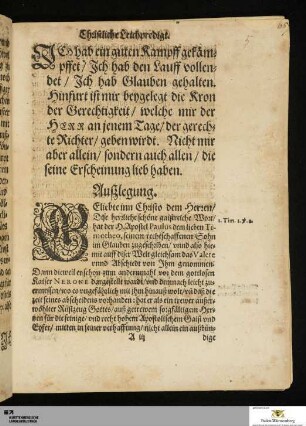 Christliche Leichpredigt.
ICh hab ein guten Kampff gekäm-
pffet / Ich hab den Lauff vollen-
det / Ich hab Glauben gehalten.
Hinfurt ist mir beygelegt die Kron
der Gerechtigkeit / welche mir der
HERR an jenem Tage / der gerech-
te Richter / geben wirdt. Nicht mir
aber allein / sondern auch allen / die
seine Erscheinung lieb haben.
Außlegung.
GEliebte inn Christo dem Herren /
Dise herrliche schöne gaistreiche Wort /
hat der H. Apostel Paulus dem lieben Ti-
motheo, seinem rechtschaffenen Sohn
im Glauben zugeschriben / unnd also hie-
mit auff diser Welt gleichsam das Valete
unnd Abschiedt von Ihm genommen.
2. Tim. 4.
Dann dieweil er schon zum andernmahl vor dem gottlosen
Kaiser NERONE dargestellt
seines abscheidens vorhanden: hat er als ein trewer außer-
wöhlter Rüstzeug Gottes / auß getrewem sorgfältigem Her-
tzen für die seinige / und recht hohem Apostolischem Gaist und
Eyfer / mitten in seiner verhafftung / nicht allein ein außbün-
A iij
dige